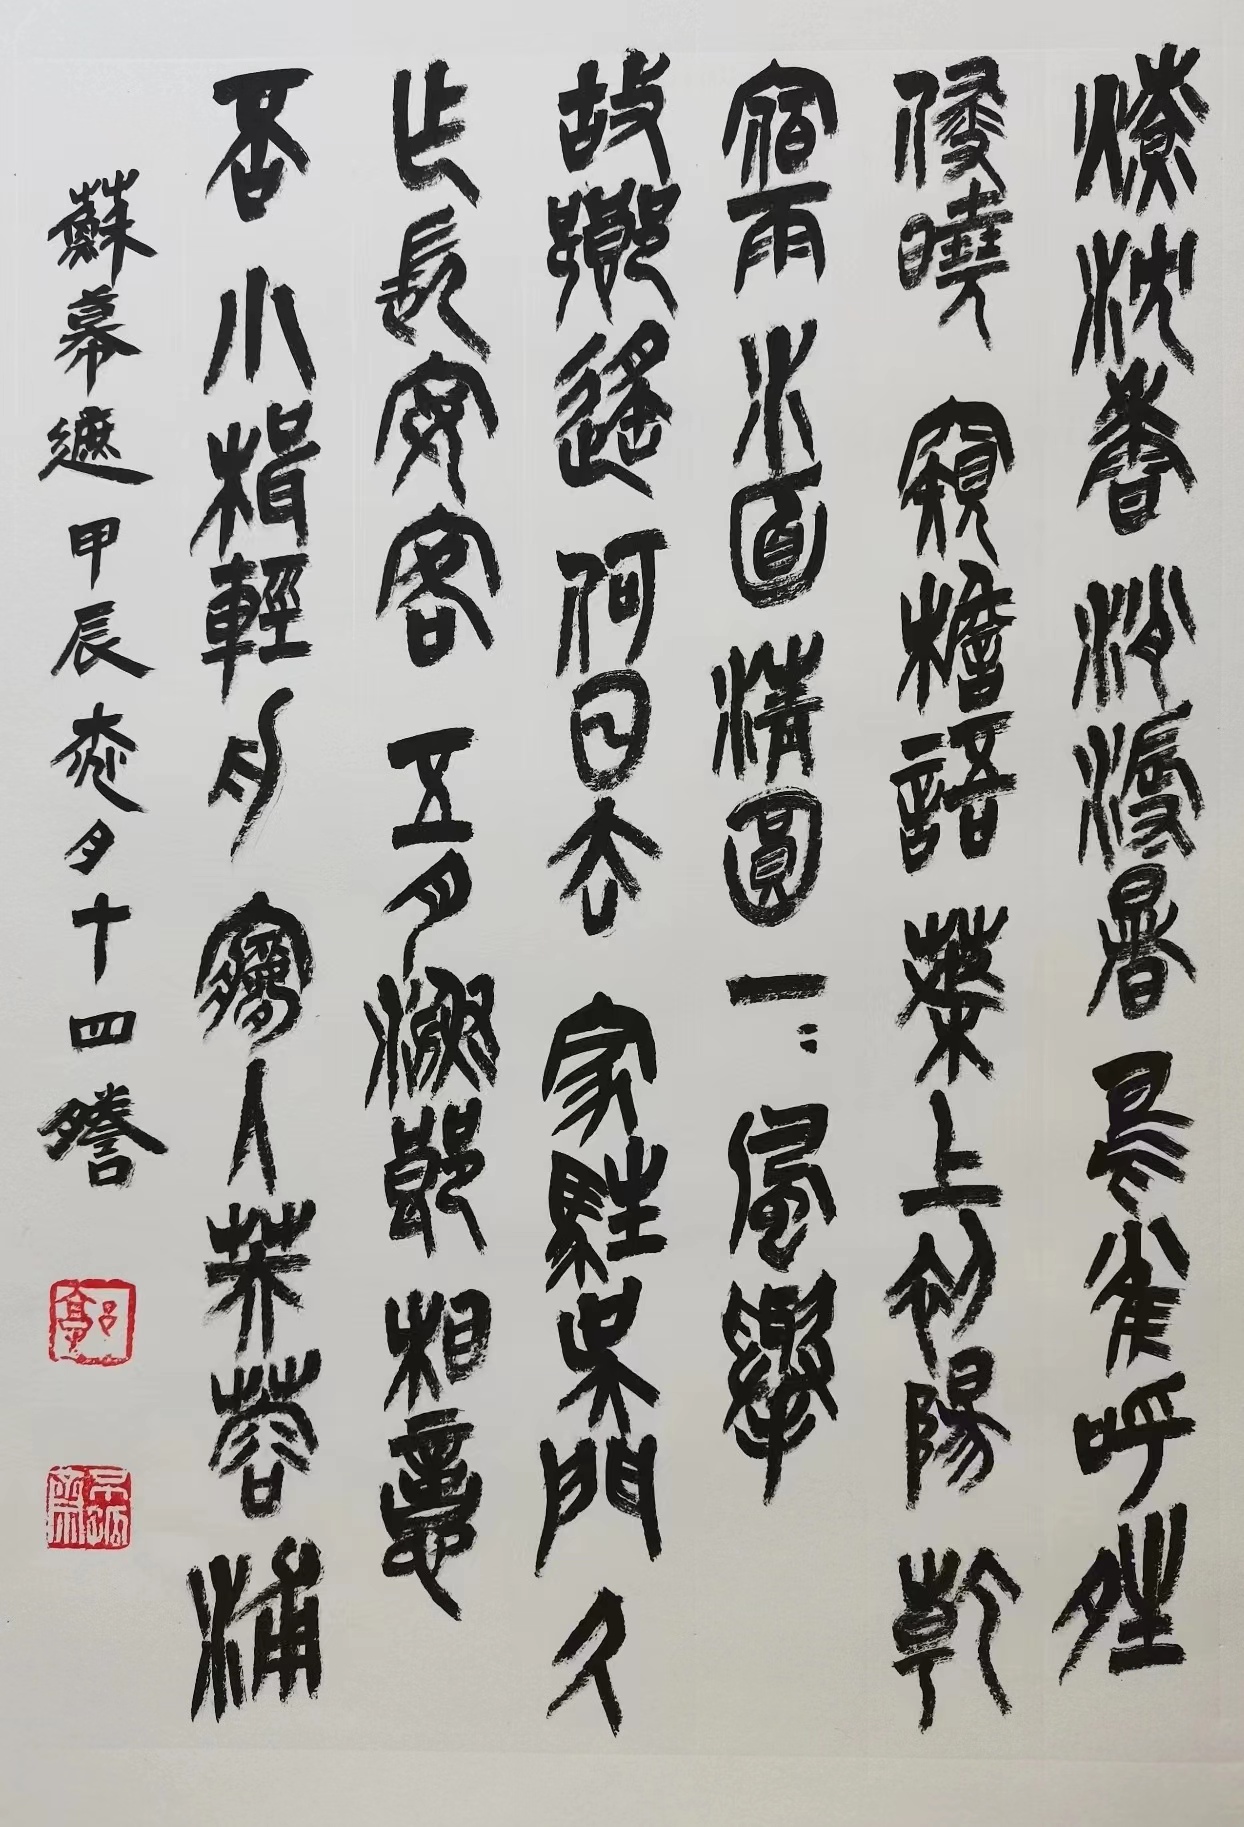 燎沈香消溽暑鳥雀呼晴
侵曉窺檐語葉上初陽乾
宿雨水面清圓一二風舉
故鄉遙何日去家駐吳門久
作長安客五月漁郎相憶
否小楫輕舟夢入芙蓉浦
蘇幕遮甲辰桼月十四謄